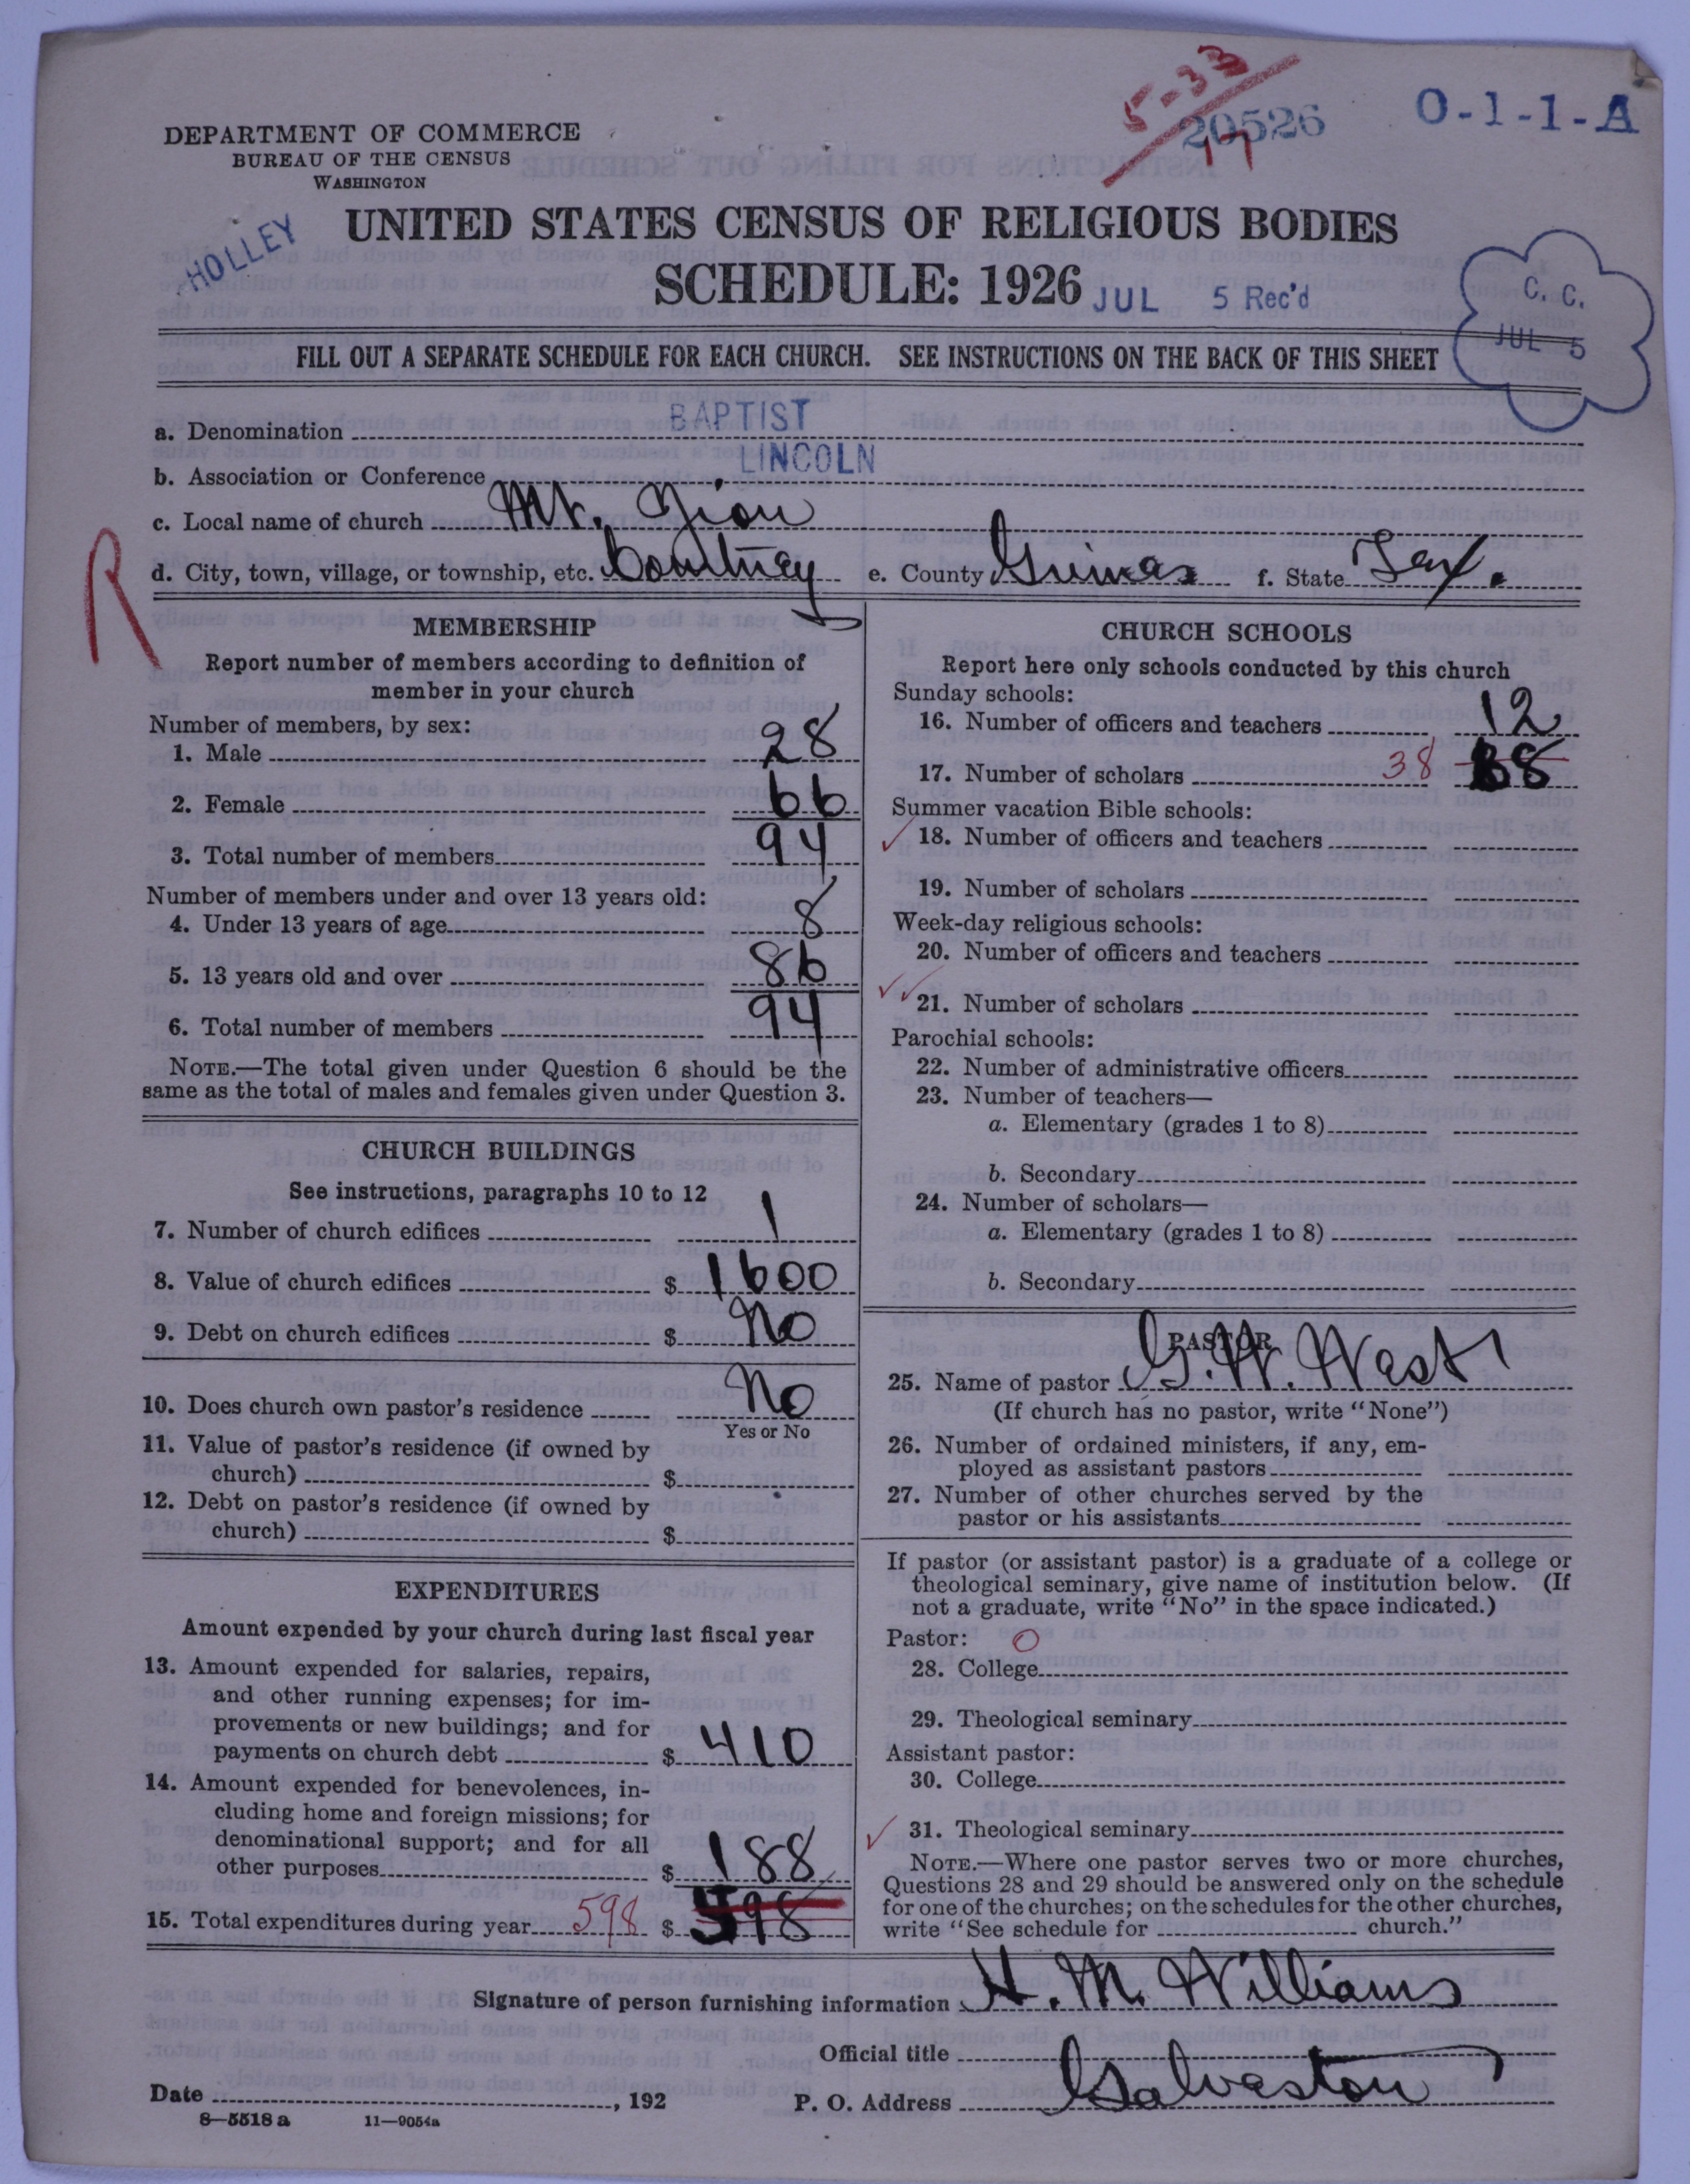 5-33
17
20526
O-1-1-A
DEPARTMENT OF COMMERCE
BUREAU OF THE CENSUS
WASHINGTON
HOLLEY
UNITED STATES CENSUS OF RELIGIOUS BODIES
SCHEDULE: 1926
JUL 5 Rec'd
C. C.
JUL 5
FILL OUT A SEPARATE SCHEDULE FOR EACH CHURCH. SEE INSTRUCTIONS ON THE BACK OF THIS SHEET
a. Denomination BAPTIST
b. Association or Conference LINCOLN
c. Local name of church Mt. Zion
R
d. City, town, village, or township, etc. Courtney e. County Grimes f. State Tex.
MEMBERSHIP
Report number of members according to definition of
member in your church
Number of members, by sex:
1. Male 28
2. Female 66
3. Total number of members 94
Number of members under and over 13 years old:
4. Under 13 years of age 8
5. 13 years old and over 86
6. Total number of members 94
NOTE.—The total given under Question 6 should be the
same as the total of males and females given under Question 3.
CHURCH BUILDINGS
See instructions, paragraphs 10 to 12
7. Number of church edifices 1
8. Value of church edifices $ 1600
9. Debt on church edifices $ No
10. Does church own pastor's residence No
Yes or No
11. Value of pastor's residence (if owned by
church) $
12. Debt on pastor's residence (if owned by
church) $
EXPENDITURES
Amount expended by your church during last fiscal year
13. Amount expended for salaries, repairs,
and other running expenses; for im-
provements or new buildings; and for
payments on church debt $ 410
14. Amount expended for benevolences, in-
cluding home and foreign missions; for
denominational support; and for all
other purposes $ 188
15. Total expenditures during year 598 $ 598
CHURCH SCHOOLS
Report here only schools conducted by this church
Sunday schools:
16. Number of officers and teachers 12
17. Number of scholars 38 38
Summer vacation Bible schools:
18. Number of officers and teachers
19. Number of scholars
Week-day religious schools:
20. Number of officers and teachers
21. Number of scholars
Parochial schools:
22. Number of administrative officers
23. Number of teachers—
a. Elementary (grades 1 to 8)
b. Secondary
24. Number of scholars—
a. Elementary (grades 1 to 8)
b. Secondary
PASTOR
25. Name of pastor G. W. West
(If church has no pastor, write "None")
26. Number of ordained ministers, if any, em-
ployed as assistant pastors
27. Number of other churches served by the
pastor or his assistants
If pastor (or assistant pastor) is a graduate of a college or
theological seminary, give name of institution below. (If
not a graduate, write "No" in the space indicated.)
Pastor: O
28. College
29. Theological seminary
Assistant pastor:
30. College
31. Theological seminary
NOTE.—Where one pastor serves two or more churches,
Questions 28 and 29 should be answered only on the schedule
for one of the churches; on the schedules for the other churches,
write "See schedule for church."
Signature of person furnishing information H. M. Williams
Official title
Date , 192 P. O. Address Galveston
8—5518 a 11—9054a